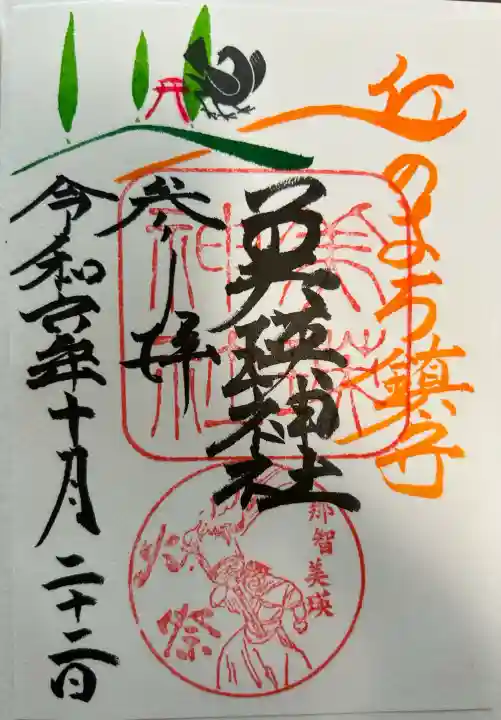 丘のまち鎮守
美瑛神社
美瑛神社
参拝
令和六年十月二十二日
那智美瑛
火祭